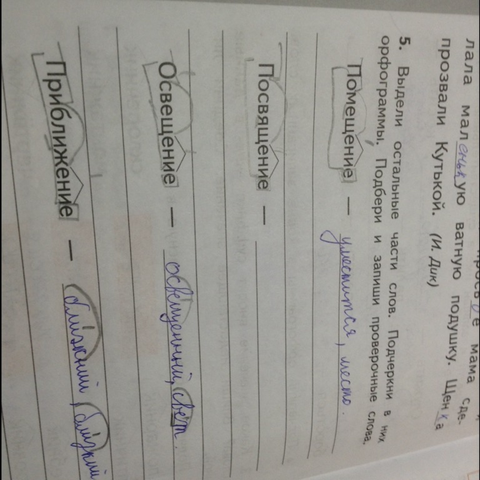 просв о е мама сде-
лала маленькую ватную подушку. Щенка
прозвали Кутькой. (И. Дик)
5. Выдели остальные части слов. Подчеркни в них
орфограммы. Подбери и запиши проверочные слова.
Помещение — уместится, место.
Посвящение —
Освещение — освещенный, свет.
Приближение — ближний, близкий